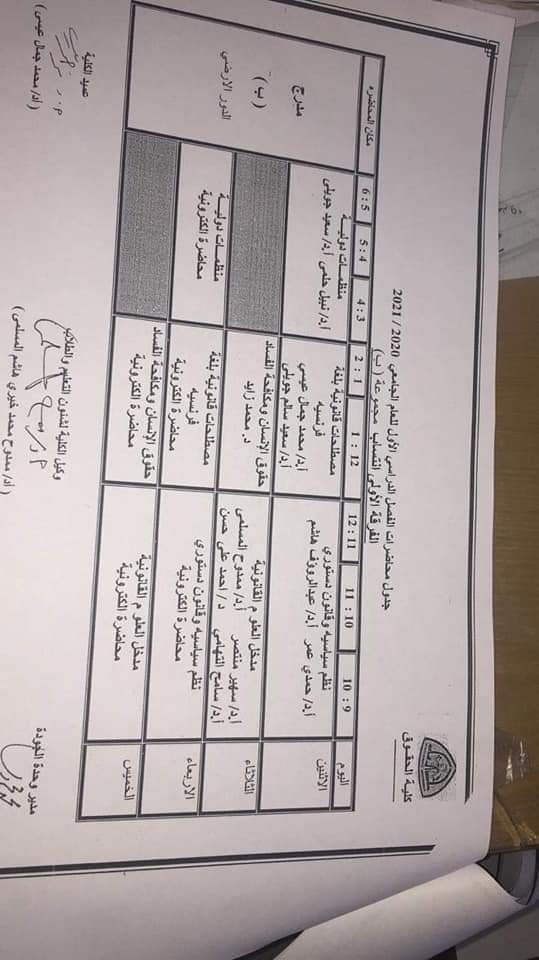 كلية الحقوق
جدول محاضرات الفصل الدراسي الأول للعام الجامعي 2020 / 2021
الفرقة الأولى انتساب مجموعة (ب)
اليوم 9 : 10 10 : 11 11 : 12 12 : 1 1 : 2 3 : 4 4 : 5 5 : 6 مكان المحاضره
الاثنين
نظم سياسيه وقانون دستوري
أ.د/ حمدي عمر أ.د/ عبدالرؤوف هاشم
مصطلحات قانونية بلغة
فرنسيه
أ.د/ محمد جمال عيسي
أ.د/ سعيد سالم جويلى
منظمات دولية
أ.د/ نبيل حلمى أ.د/ سعيد جويلى
مدرج
(ب)
الدور الارضي
الثلاثاء
مدخل العلوم القانونية
أ.د/ سهير منتصر أ.د/ ممدوح المسلمى
أ.د/ سامح التهامي د/ احمد على حسن
حقوق الإنسان ومكافحة الفساد
د. محمد زايد
الاربعاء
نظم سياسيه وقانون دستوري
محاضرة الكترونية
مصطلحات قانونية بلغة
فرنسيه
محاضرة الكترونية
منظمات دولية
محاضرة الكترونية
الخميس
مدخل العلوم القانونية
محاضرة الكترونية
حقوق الإنسان ومكافحة الفساد
محاضرة الكترونية
مدير وحدة الجودة
وكيل الكلية لشئون التعليم والطلاب
(أ.د/ ممدوح محمد خيري هاشم المسلمى)
عميد الكلية
(أ.د/ محمد جمال عيسى)